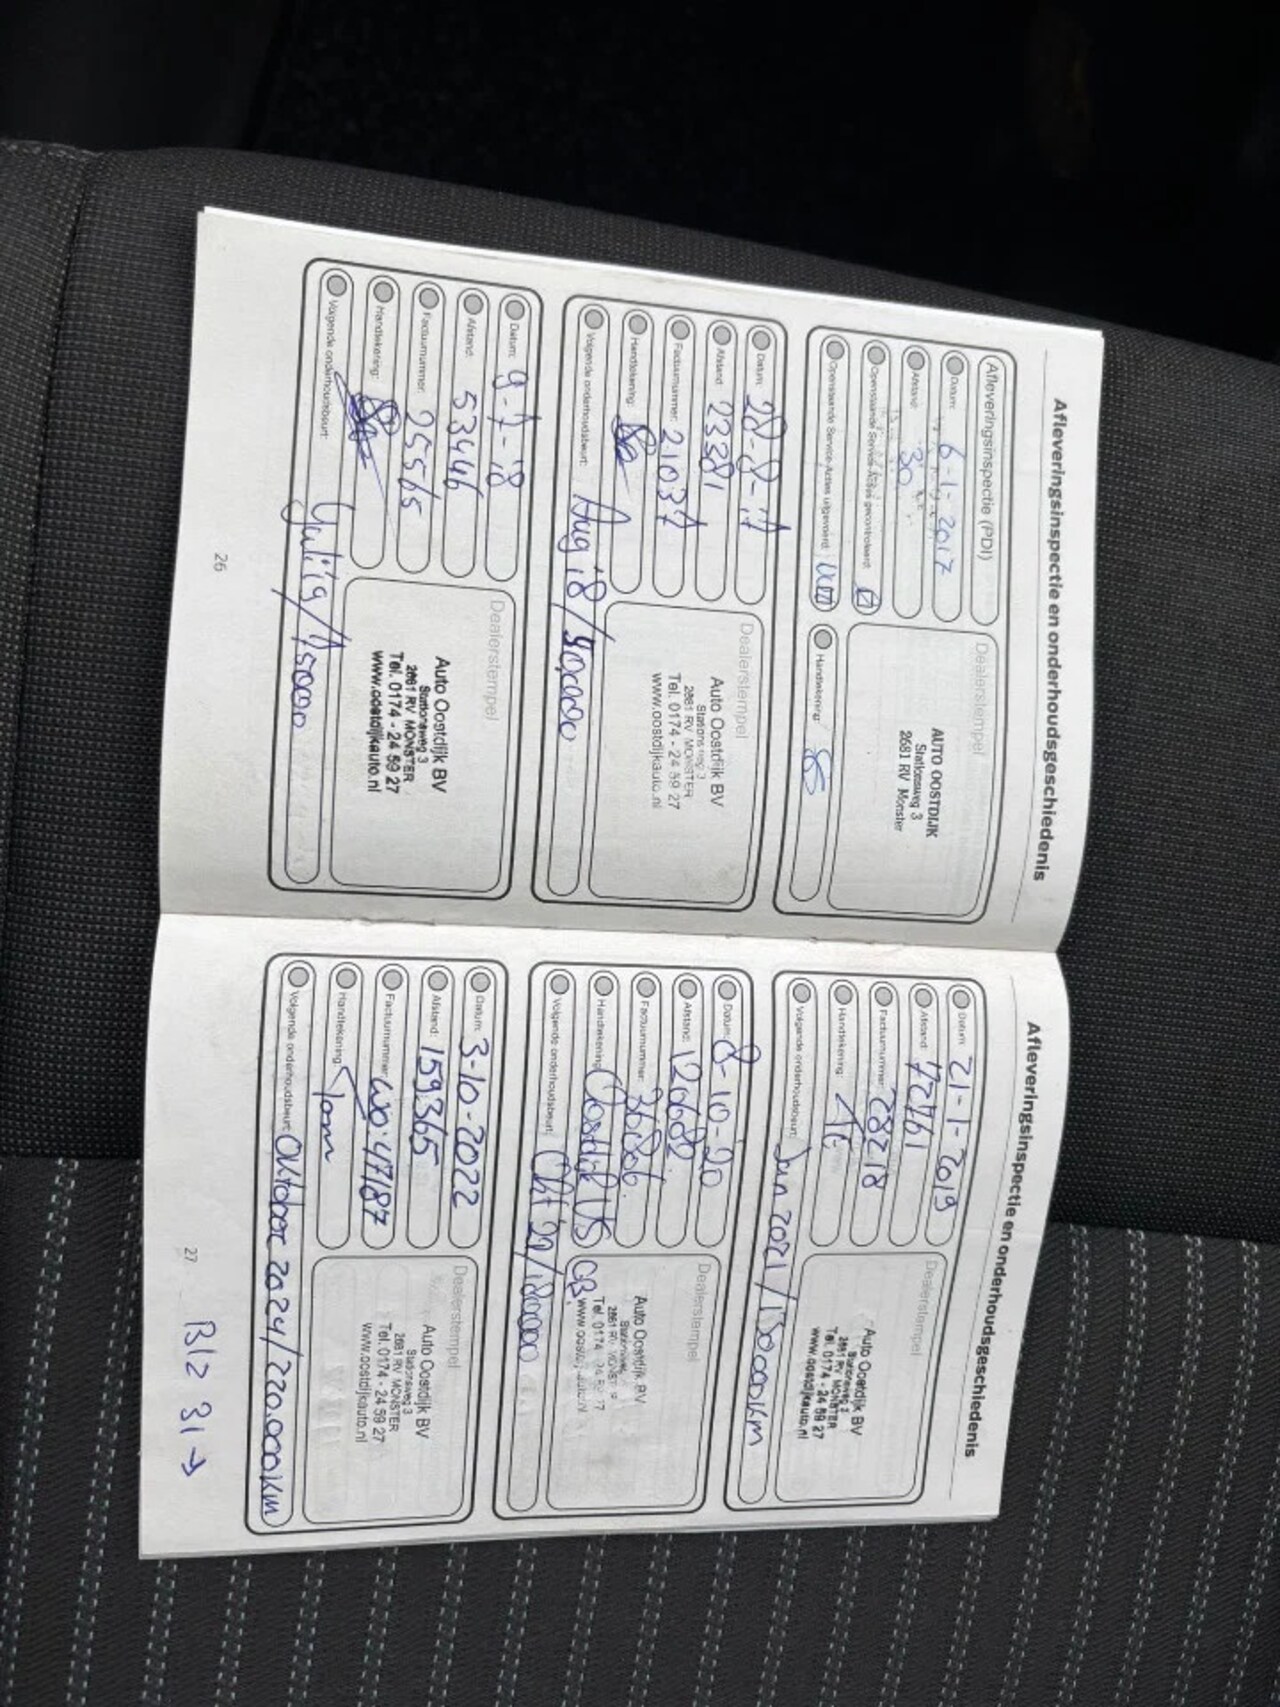 Afleveringsinspectie en onderhoudsgeschiedenis
Afleveringsinspectie (PDI)
Datum: 6-1-2017
Afstand: 30
Openstaande Service-Acties gecontroleerd:
Openstaande Service-Acties uitgevoerd:
Dealerstempel
AUTO OOSTDIJK
Stationsweg 3
2681 RV Monster
Handtekening:
Datum: 28-8-17
Afstand: 23381
Factuurnummer: 21037
Handtekening:
Volgende onderhoudsbeurt: Aug '18 / 50.000
Dealerstempel
Auto Oostdijk BV
Stationsweg 3
2681 RV MONSTER
Tel. 0174 - 24 59 27
www.oostdijkauto.nl
Datum: 9-7-'18
Afstand: 53446
Factuurnummer: 25565
Handtekening:
Volgende onderhoudsbeurt: Juli '19 / 75000
Dealerstempel
Auto Oostdijk BV
Stationsweg 3
2681 RV MONSTER
Tel. 0174 - 24 59 27
www.oostdijkauto.nl
26
Afleveringsinspectie en onderhoudsgeschiedenis
Datum: 21-1-2019
Afstand: 72761
Factuurnummer: 28218
Handtekening:
Volgende onderhoudsbeurt: Jan 2021 / 130.000 km
Dealerstempel
Auto Oostdijk BV
Stationsweg 3
2681 RV MONSTER
Tel. 0174 - 24 59 27
www.oostdijkauto.nl
Datum: 8-10-20
Afstand: 120682
Factuurnummer: 36806.
Handtekening: Oostdijk
Volgende onderhoudsbeurt: Okt '22 / 180000
Dealerstempel
Auto Oostdijk BV
Stationsweg
2681 RV MONSTER
Tel. 0174 - 24 59 27
Datum: 3-10-2022
Afstand: 159365
Factuurnummer: WO: 47187
Handtekening:
Volgende onderhoudsbeurt: Oktober 2024 / 220.000 km
Dealerstempel
Auto Oostdijk BV
Stationsweg 3
2681 RV MONSTER
Tel. 0174 - 24 59 27
www.oostdijkauto.nl
27
Blz 31 →